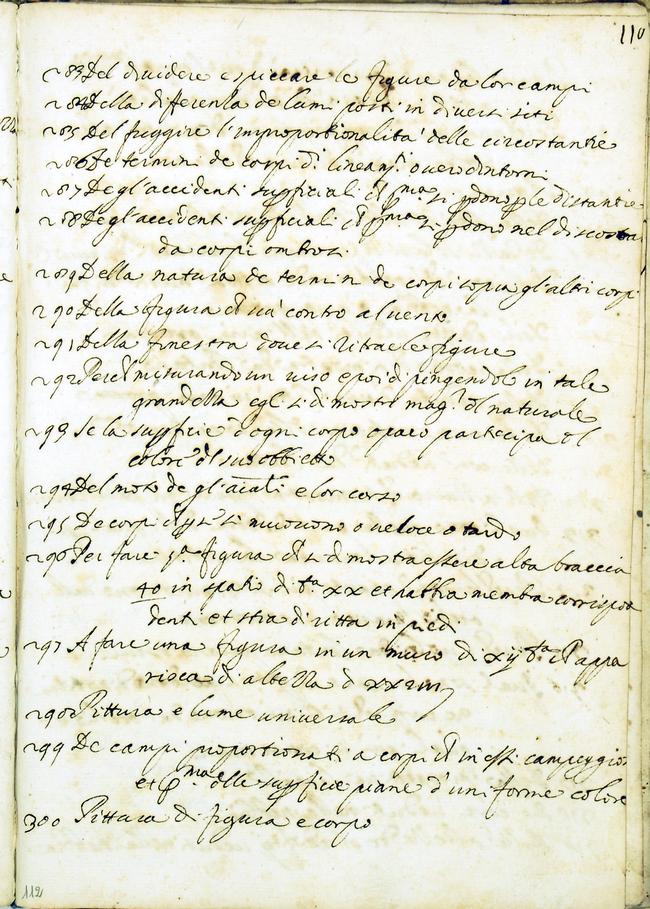 110
283 Del dividere e spiccare le figure da lor campi
284 Della differenza de lumi posti in diversi siti
285 Del fuggire l'improportionalità delle circostantie
286 De termini de corpi dti lineamti overo dintorni
287 Degl'accidenti supficiali ch pma si pdono p le distantie
288 Degl'accidenti supficiali ch pma si pdono nel discostar
da corpi ombrosi.
289 Della natura de termini de corpi sopra gl'altri corpi
290 Della figura ch va contro al vento
291 Della finestra dove si ritrae le figure
292 Perch misurando un viso e poi dipingendolo in tale
grandezza egl si dimostr magr dl naturale
293 Se la supficie d'ogni corpo opaco partecipa dl
colore dl suo obbietto
294 Del moto de gl'aiali e lor corso
295 De corpi ch p se si muovono o veloce o tardo
296 Per fare 1a figura ch si dimostra essere alta braccia
40 in spatio di bra xx et habbia membra corrispon
denti et stia diritta in piedi
297 A fare una figura in un muro di xij bra ch appa
risca di altezza d xxiiij
298 Pittura e lume universale
299 De campi proportionati a corpi ch in essi campeggiono
et pma dlle supficie piane d'uniforme colore
300 Pittura di figura e corpo
112